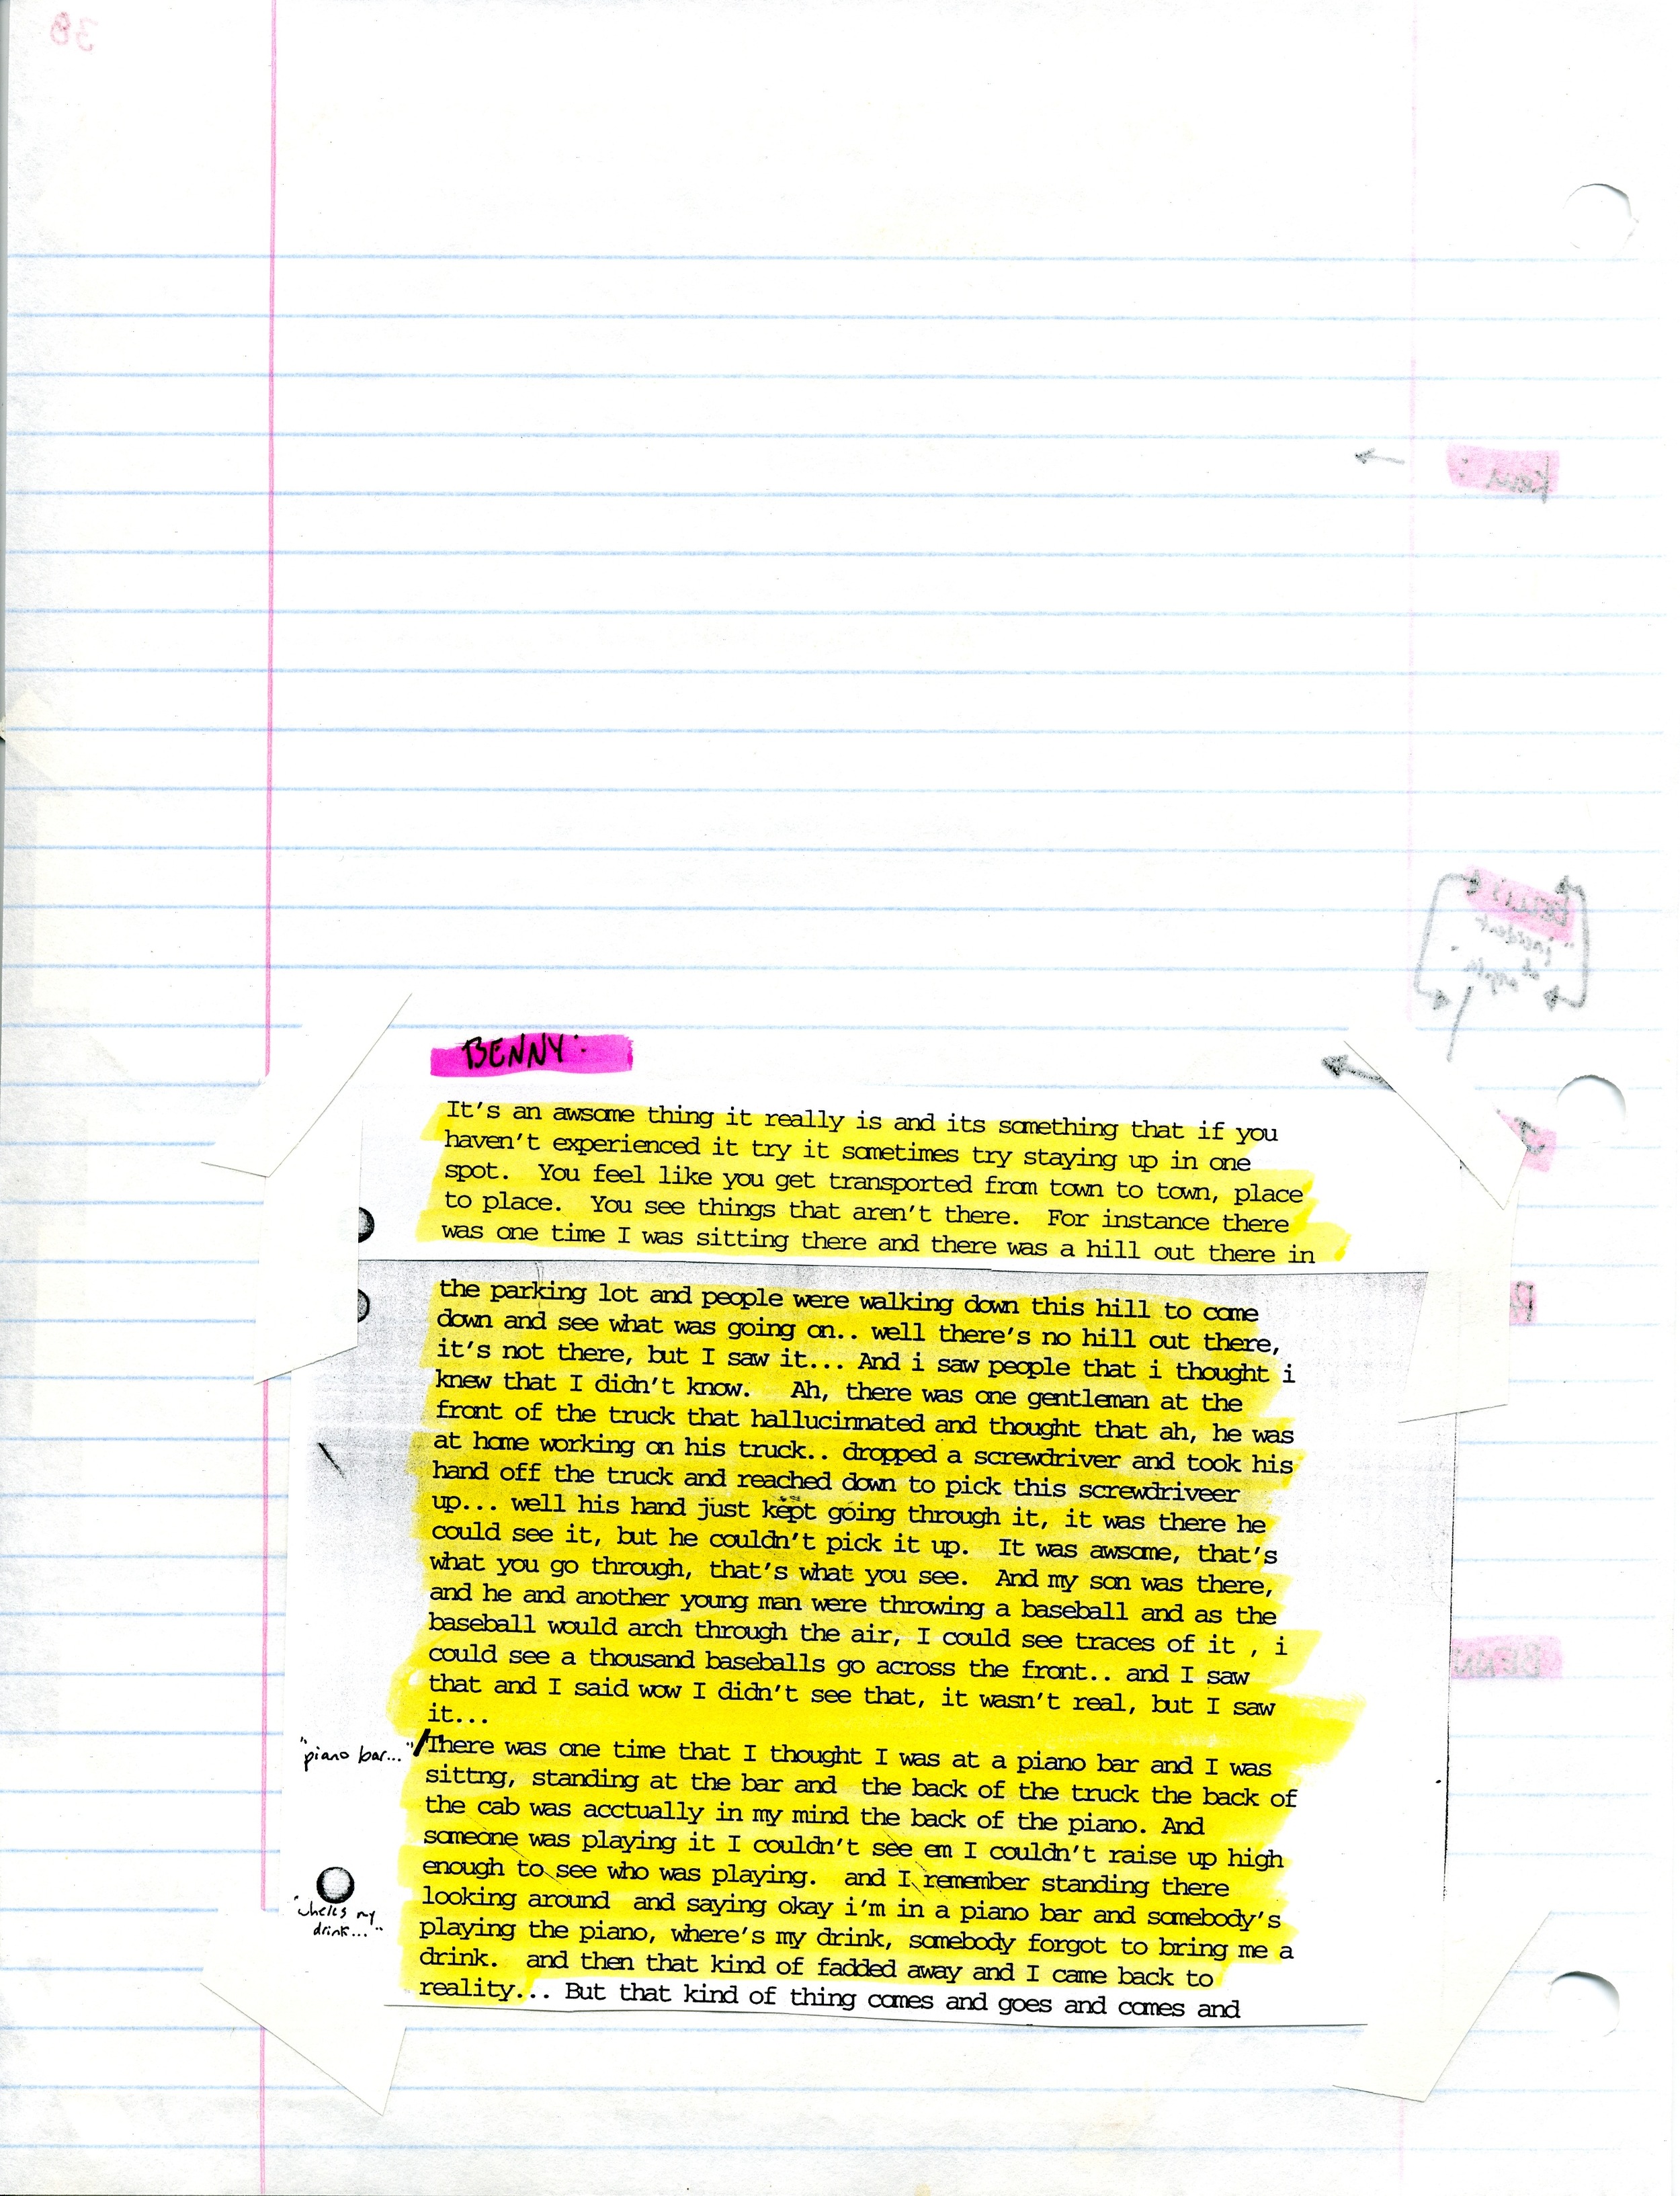 38
Kelli:
BENNY:
It's an awsome thing it really is and its something that if you
haven't experienced it try it sometimes try staying up in one
spot.  You feel like you get transported from town to town, place
to place.  You see things that aren't there.  For instance there
was one time I was sitting there and there was a hill out there in
the parking lot and people were walking down this hill to come
down and see what was going on.. well there's no hill out there,
it's not there, but I saw it... And i saw people that i thought i
knew that I didn't know.   Ah, there was one gentleman at the
front of the truck that hallucinnated and thought that ah, he was
at home working on his truck.. dropped a screwdriver and took his
hand off the truck and reached down to pick this screwdriveer
up... well his hand just kept going through it, it was there he
could see it, but he couldn't pick it up.  It was awsome, that's
what you go through, that's what you see.  And my son was there,
and he and another young man were throwing a baseball and as the
baseball would arch through the air, I could see traces of it , i
could see a thousand baseballs go across the front.. and I saw
that and I said wow I didn't see that, it wasn't real, but I saw
it...
"piano bar..." /There was one time that I thought I was at a piano bar and I was
sittng, standing at the bar and  the back of the truck the back of
the cab was acctually in my mind the back of the piano. And
someone was playing it I couldn't see em I couldn't raise up high
enough to see who was playing.  and I remember standing there
looking around  and saying okay i'm in a piano bar and somebody's
"where's my
drink..."
playing the piano, where's my drink, somebody forgot to bring me a
drink.  and then that kind of fadded away and I came back to
reality... But that kind of thing comes and goes and comes and